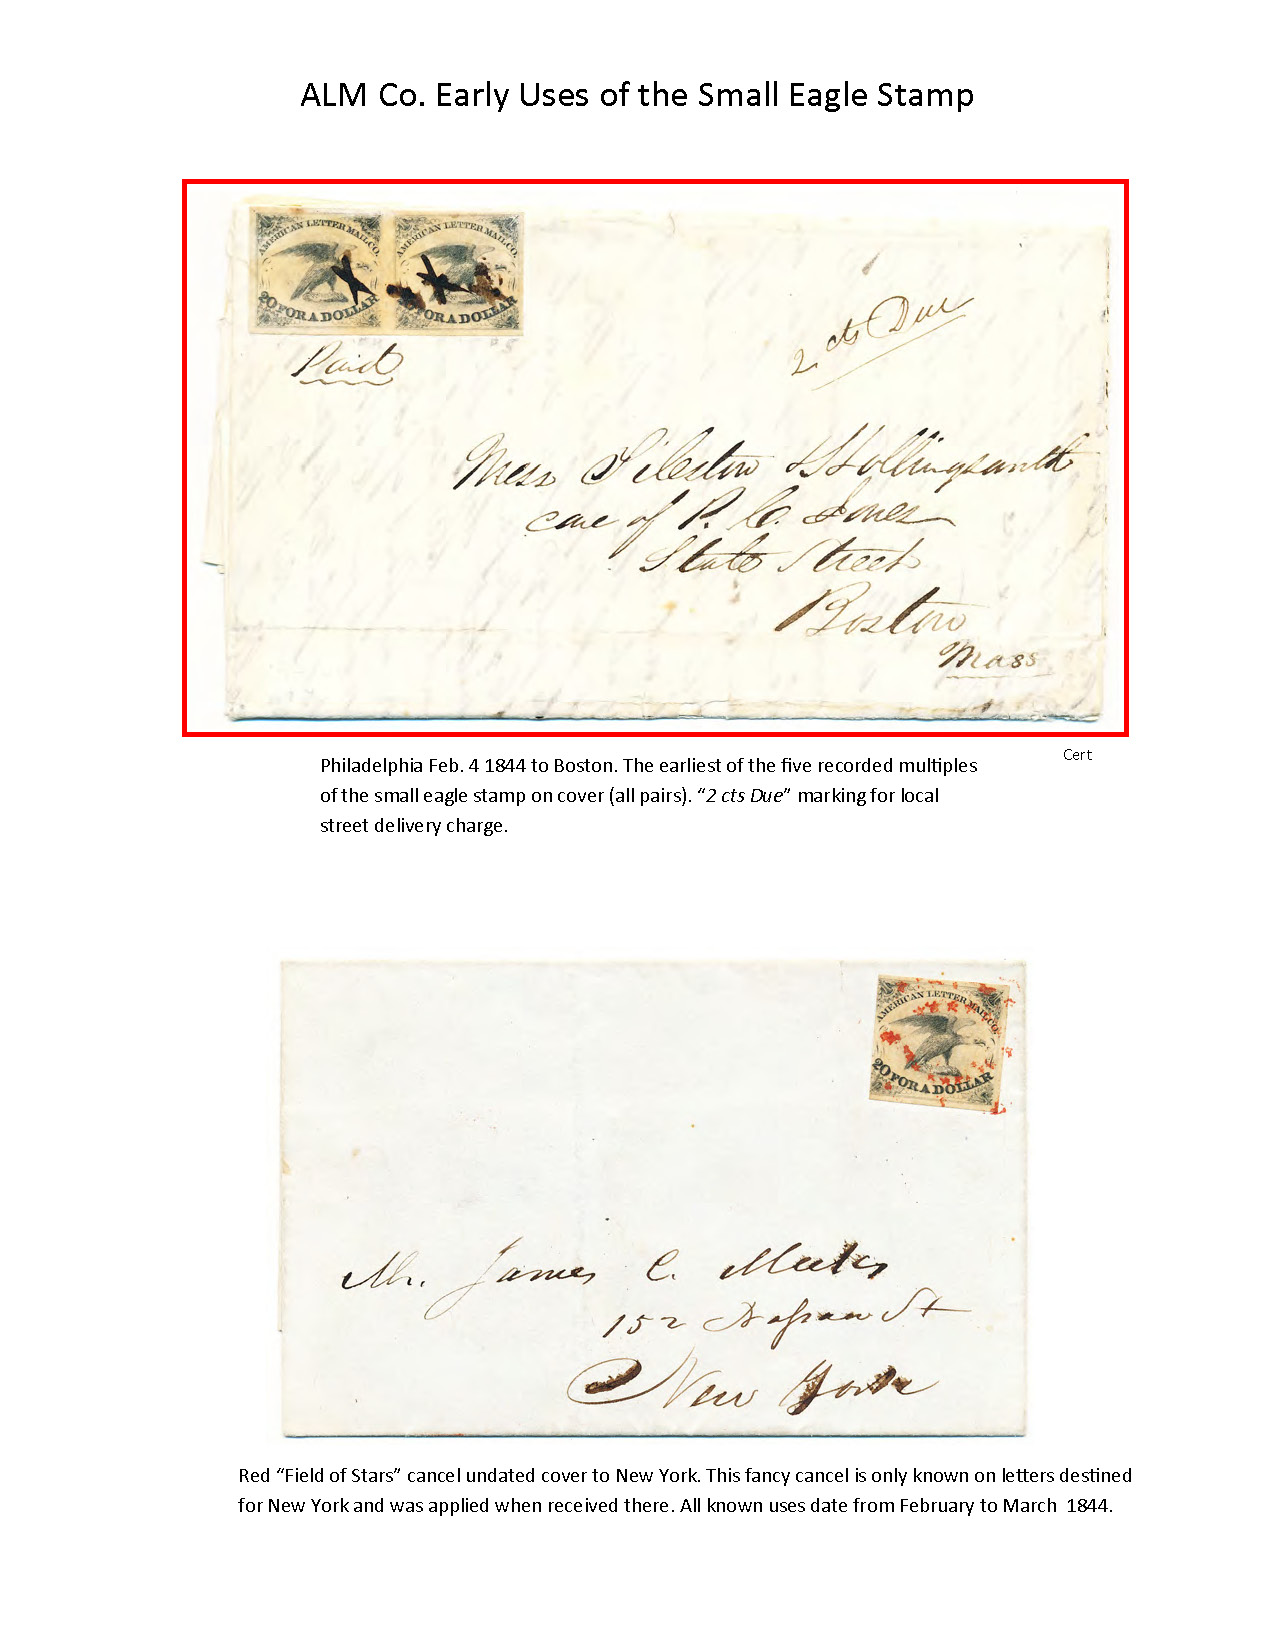 ALM Co. Early Uses of the Small Eagle Stamp
AMERICAN LETTER MAIL CO. AMERICAN LETTER MAIL CO.
20 FOR A DOLLAR FOR A DOLLAR
Paid
2 cts Due
Mess & Hollingsworth
care of P. C. Jones
State Street
Boston
Mass
Cert
Philadelphia Feb. 4 1844 to Boston. The earliest of the five recorded multiples
of the small eagle stamp on cover (all pairs). “2 cts Due” marking for local
street delivery charge.
AMERICAN LETTER MAIL CO.
20 FOR A DOLLAR
Mr. James C. Meeks
152 Nassau St
New York
Red “Field of Stars” cancel undated cover to New York. This fancy cancel is only known on letters destined
for New York and was applied when received there. All known uses date from February to March 1844.